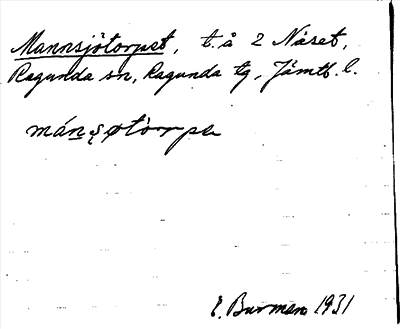 Mannsjötorpet, t. å 2 Näset,
Ragunda sn, Ragunda tg, Jämtl. l.
mánşøtòrpe
E. Burman 1931